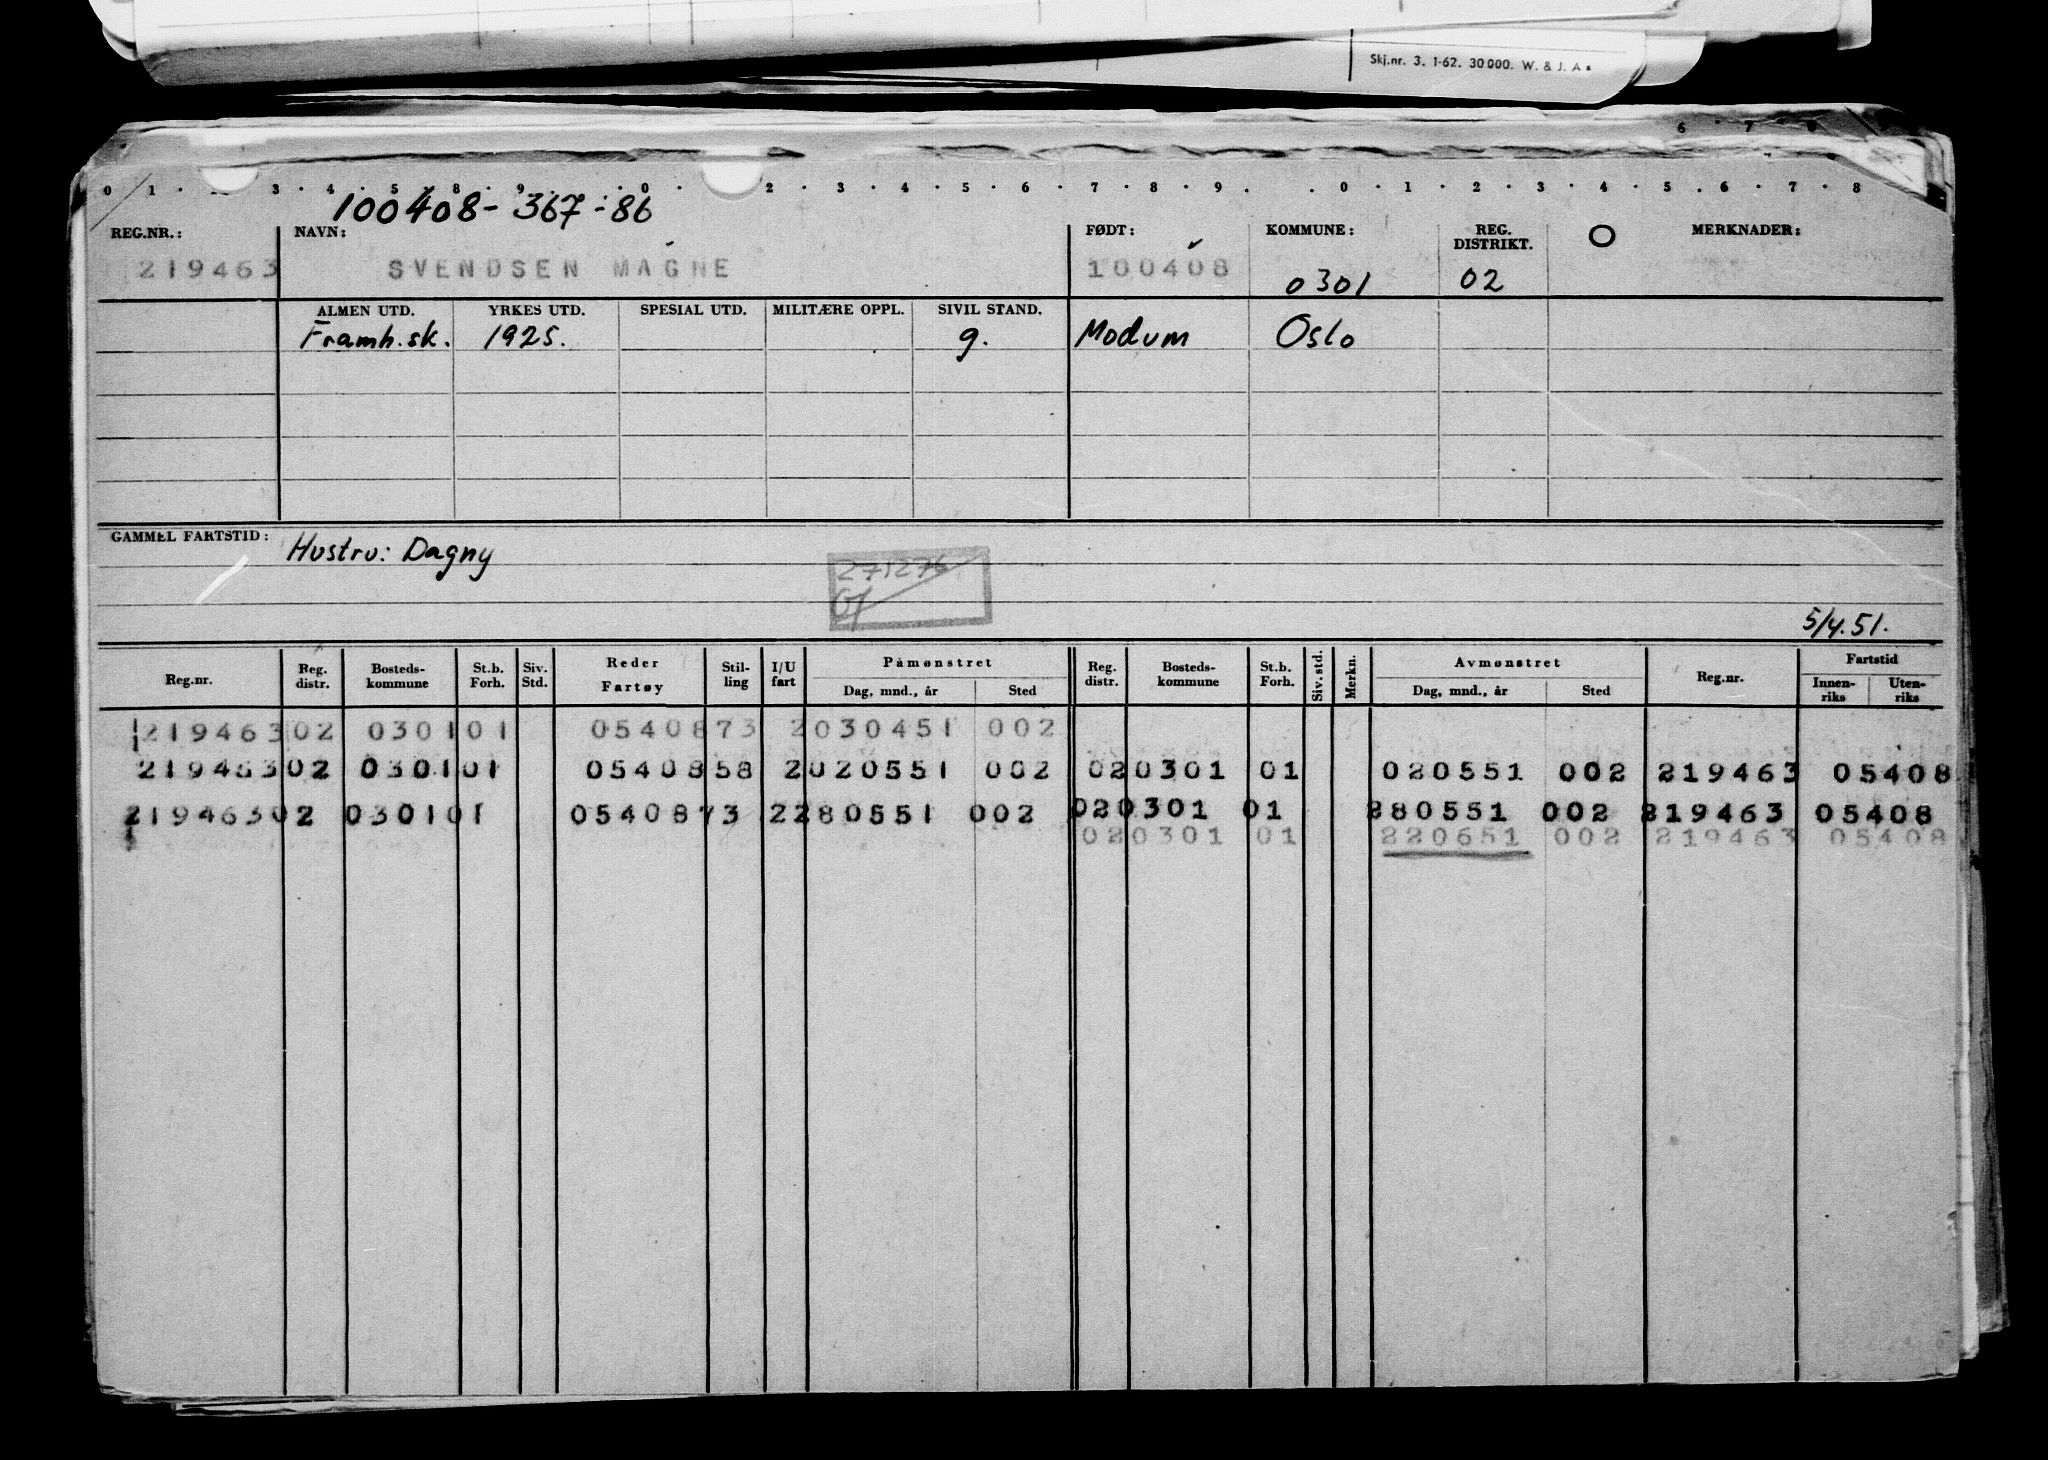 Skj.nr. 3. 1-62. 30 000. W. & J. A.
6 · 7 · 8
0 1 · 3 · 4 · 5 · 8 · 9 · 0 · 2 · 3 · 4 · 5 · 6 · 7 · 8 · 9 . . 0 · 1 · 2 · 3 · 4 · 5 . 6 · 7 · 8
100408-367-86
REG.NR.: NAVN: FØDT: KOMMUNE: REG. DISTRIKT. O MERKNADER:
219463 SVENDSEN MAGNE 100408 0301 02
ALMEN UTD. YRKES UTD. SPESIAL UTD. MILITÆRE OPPL. SIVIL STAND.
Framh.sk. 1925. g. Modum Oslo
GAMMEL FARTSTID: Hustru: Dagny
271276
5/4.51.
Reg.nr. Reg. distr. Bosteds-kommune St.b. Forh. Siv. Std. Reder Fartøy Stil-ling I/U fart Påmønstret Dag, mnd., år Sted Reg. distr. Bosteds-kommune St.b. Forh. Siv. std. Merkn. Avmønstret Dag, mnd., år Sted Reg.nr. Fartstid Innen-riks Uten-riks
219463 02 0301 01 05408 73 2 030451 002
219463 02 0301 01 05408 58 2 020551 002 02 0301 01 020551 002 219463 05408
219463 02 0301 01 05408 73 2 280551 002 02 0301 01 280551 002 219463 05408
02 0301 01 220651 002 219463 05408